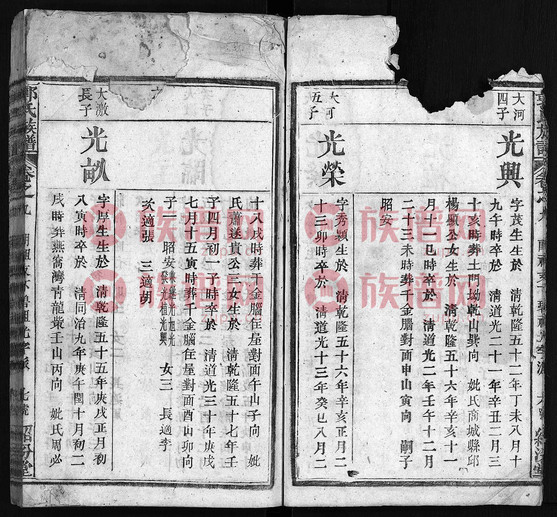 大河
四子
光興
字茂生生於　清乾隆五十二年丁未八月十
九午時卒於　清道光二十一年辛丑二月三
十亥時葬土門坳乾山巽向　妣氏商城縣邱
楊顯公女生於　清乾隆五十六年辛亥十一
月十　巳時卒於　清道光二年壬午十二月
二十三未時葬千金腦對面申山寅向　嗣子
昭安
大河
五子
光榮
字秀穎生於　清乾隆五十六年辛亥五月二
十三卯時卒於　清道光十三年癸巳八月二
十八戌時葬千金腦庄屋對面午山子向　妣
氏蕭送貴公三女生於　清乾隆五十七年壬
子四月初二子時卒於　清道光三十年庚戌
七月十五寅時葬千金腦庄屋對面酉山卯向
子一　昭安　女三　長適李
次適張　三適胡
大澈
長子
光畝
字厚生生於　清乾隆五十五年庚戌正月初
六寅時卒於　清同治九年庚午閏十月初二
戌時葬燕窩灣青龍嘴壬山丙向　妣氏周必
郭氏族譜
卷之九